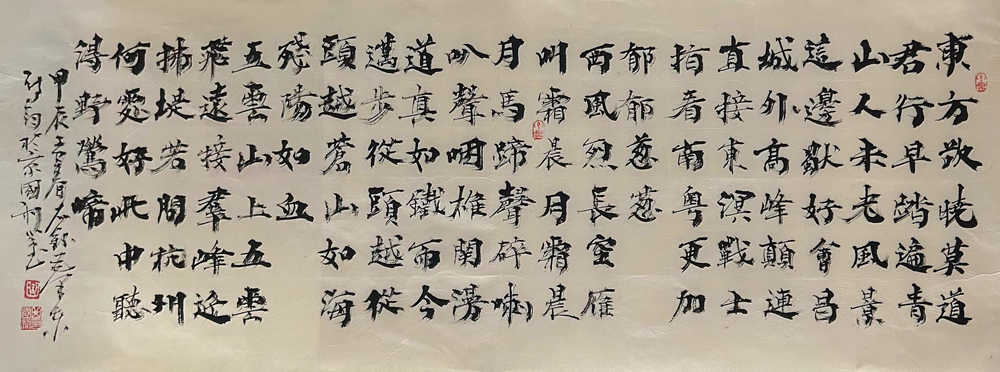 東方欲曉莫道
君行早踏遍青
山人未老風景
這邊獨好會昌
城外高峰顛連
直接東溟戰士
指看南粵更加
郁郁葱葱
西風烈長空雁
叫霜晨月霜晨
月馬蹄聲碎喇
叭聲咽雄關漫
道真如鐵而今
邁步從頭越從
頭越蒼山如海
殘陽如血
五雲山上五雲
飛遠接羣峰近
拂堤若問杭州
何處好此中聽
得野鶯啼
甲辰春
於京國